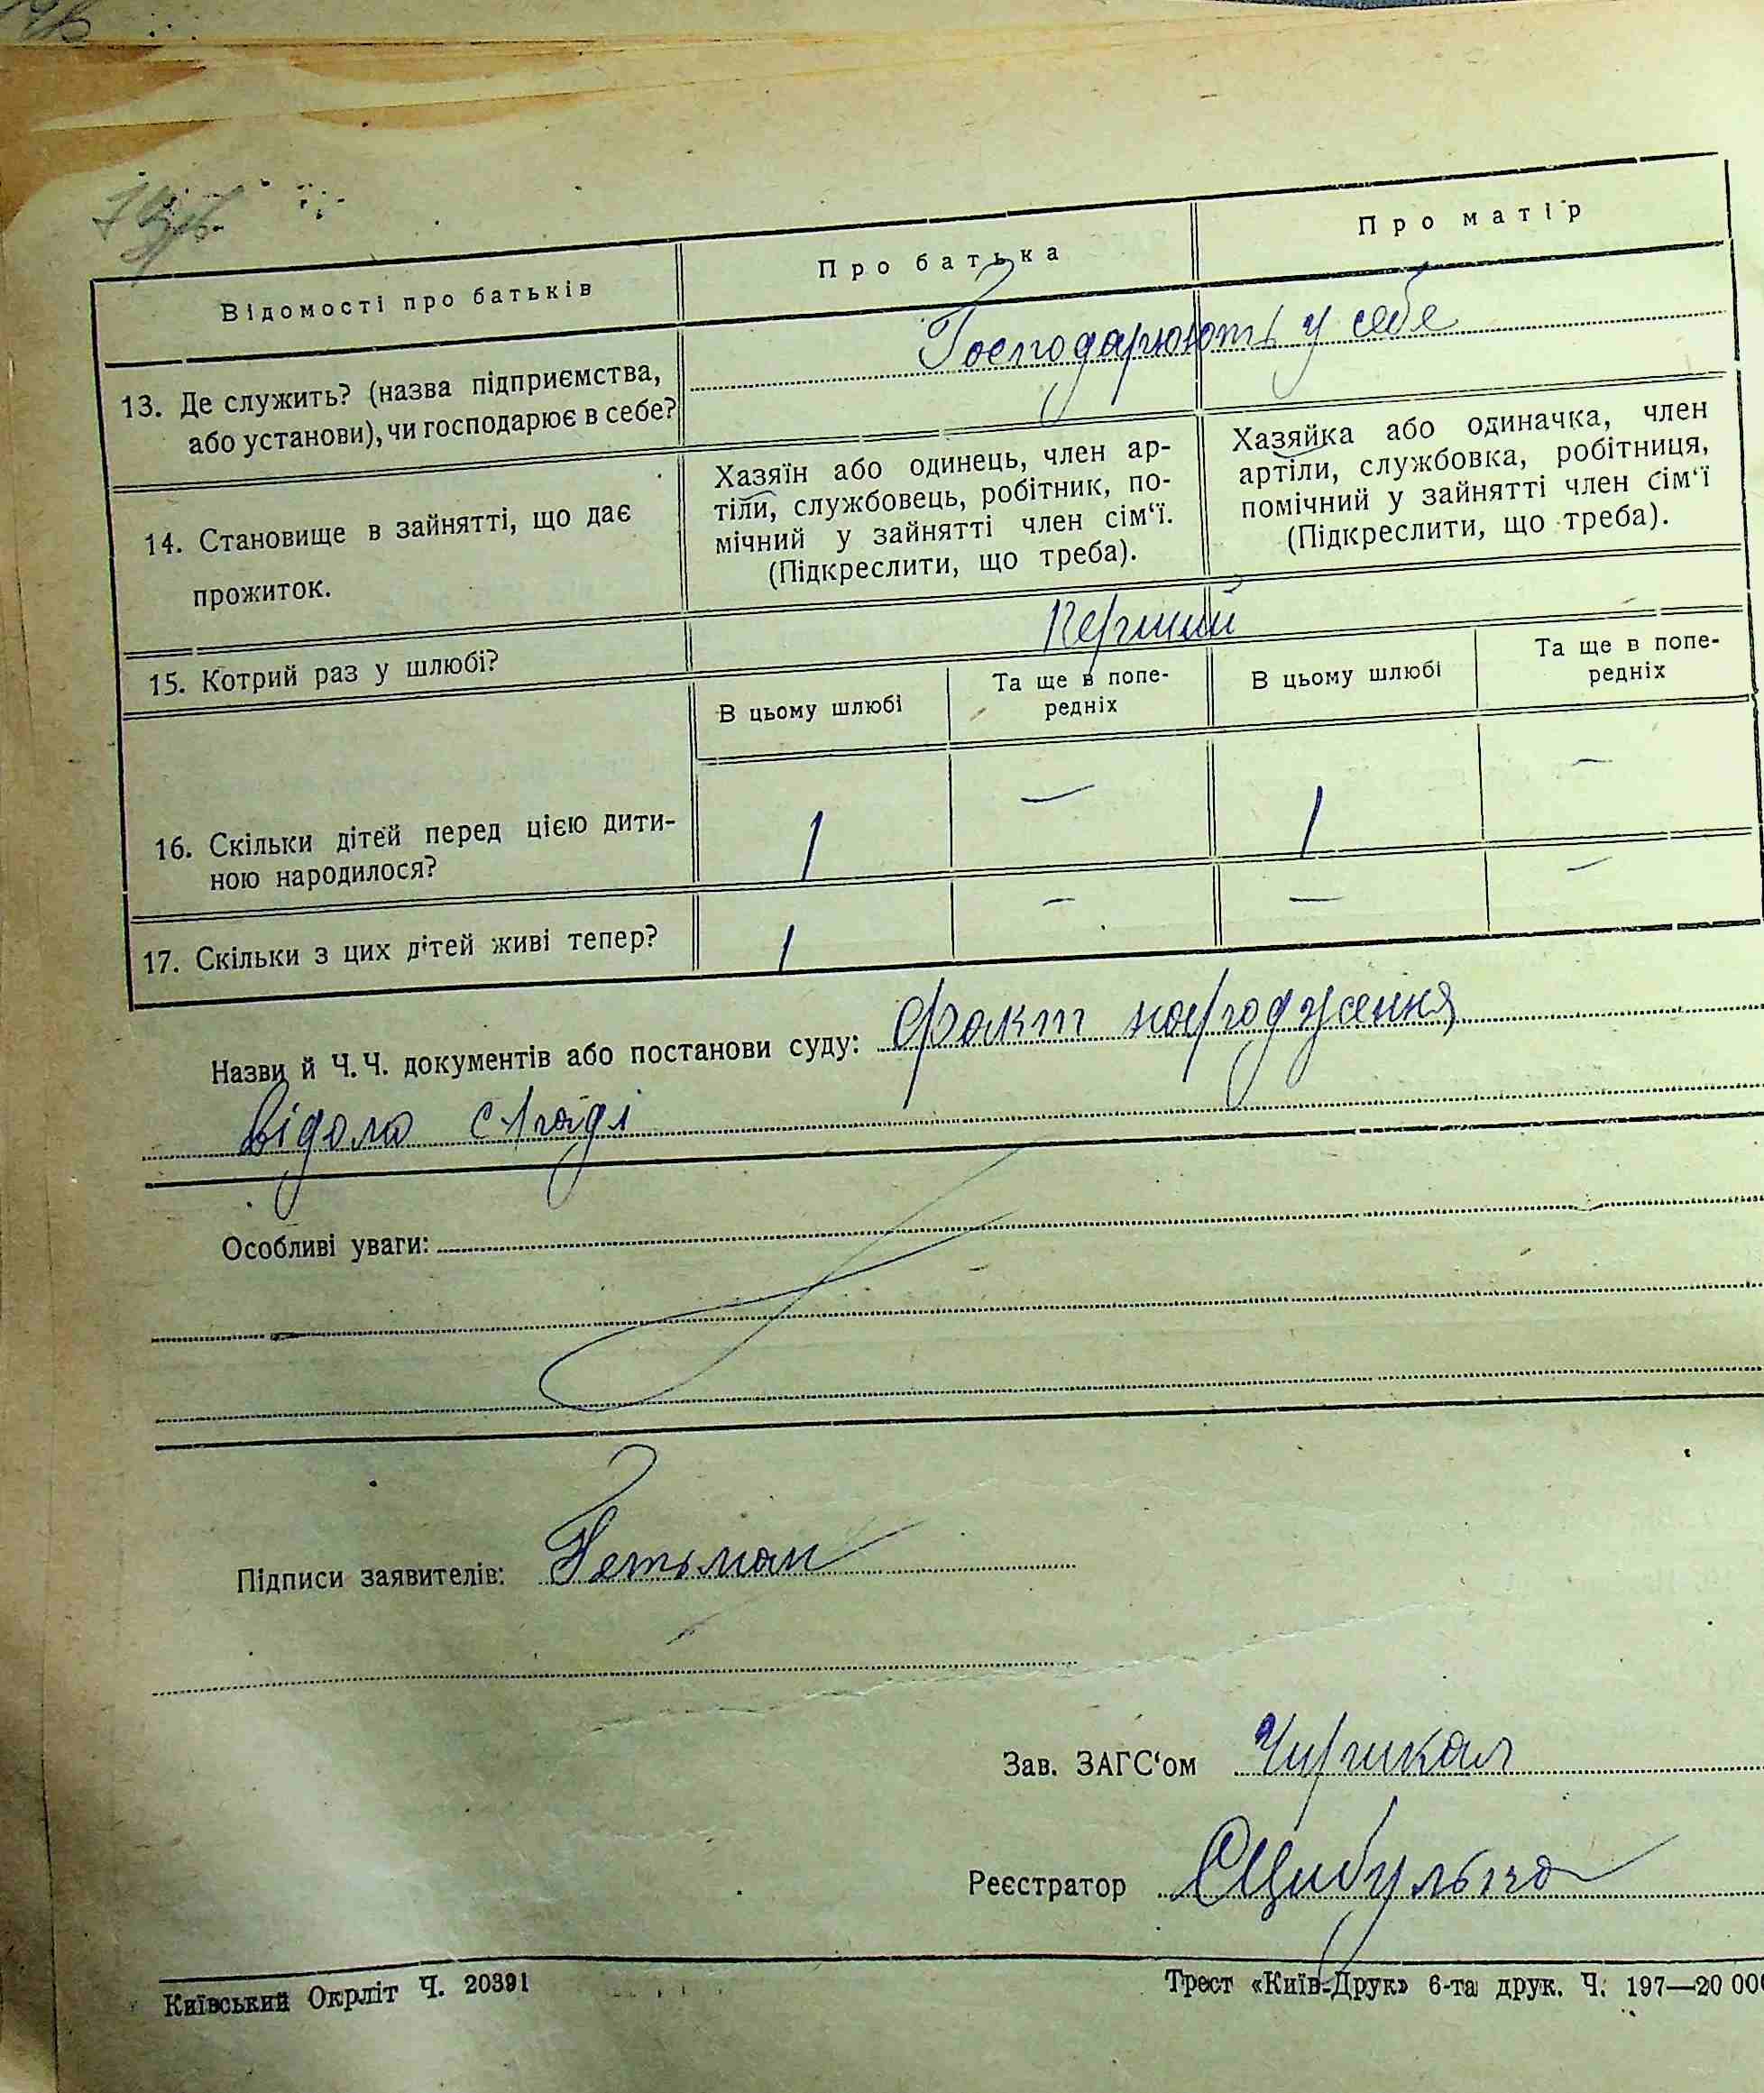 Відомості про батьків
Про батька
Про матір
13. Де служить? (назва підприємства,
або установи), чи господарює в себе?
Господарюють у себе
14. Становище в зайнятті, що дає
прожиток.
Хазяїн або одинець, член ар-
тіли, службовець, робітник, по-
мічний у зайнятті член сім‘ї.
(Підкреслити, що треба).
Хазяйка або одиначка, член
артіли, службовка, робітниця,
помічний у зайнятті член сім‘ї
(Підкреслити, що треба).
15. Котрий раз у шлюбі?
Перший
В цьому шлюбі
Та ще в попе-
редніх
В цьому шлюбі
Та ще в попе-
редніх
16. Скільки дітей перед цією дити-
ною народилося?
1 — 1 —
17. Скільки з цих дітей живі тепер?
1 — — —
Назви й Ч.Ч. документів або постанови суду: Факт народження
відомо с/раді
Особливі уваги:
Підписи заявителів: Гетьман
Зав. ЗАГС‘ом
Реєстратор
Київський Окрліт Ч. 20391
Трест «Київ-Друк» 6-та друк. Ч. 197—20 000